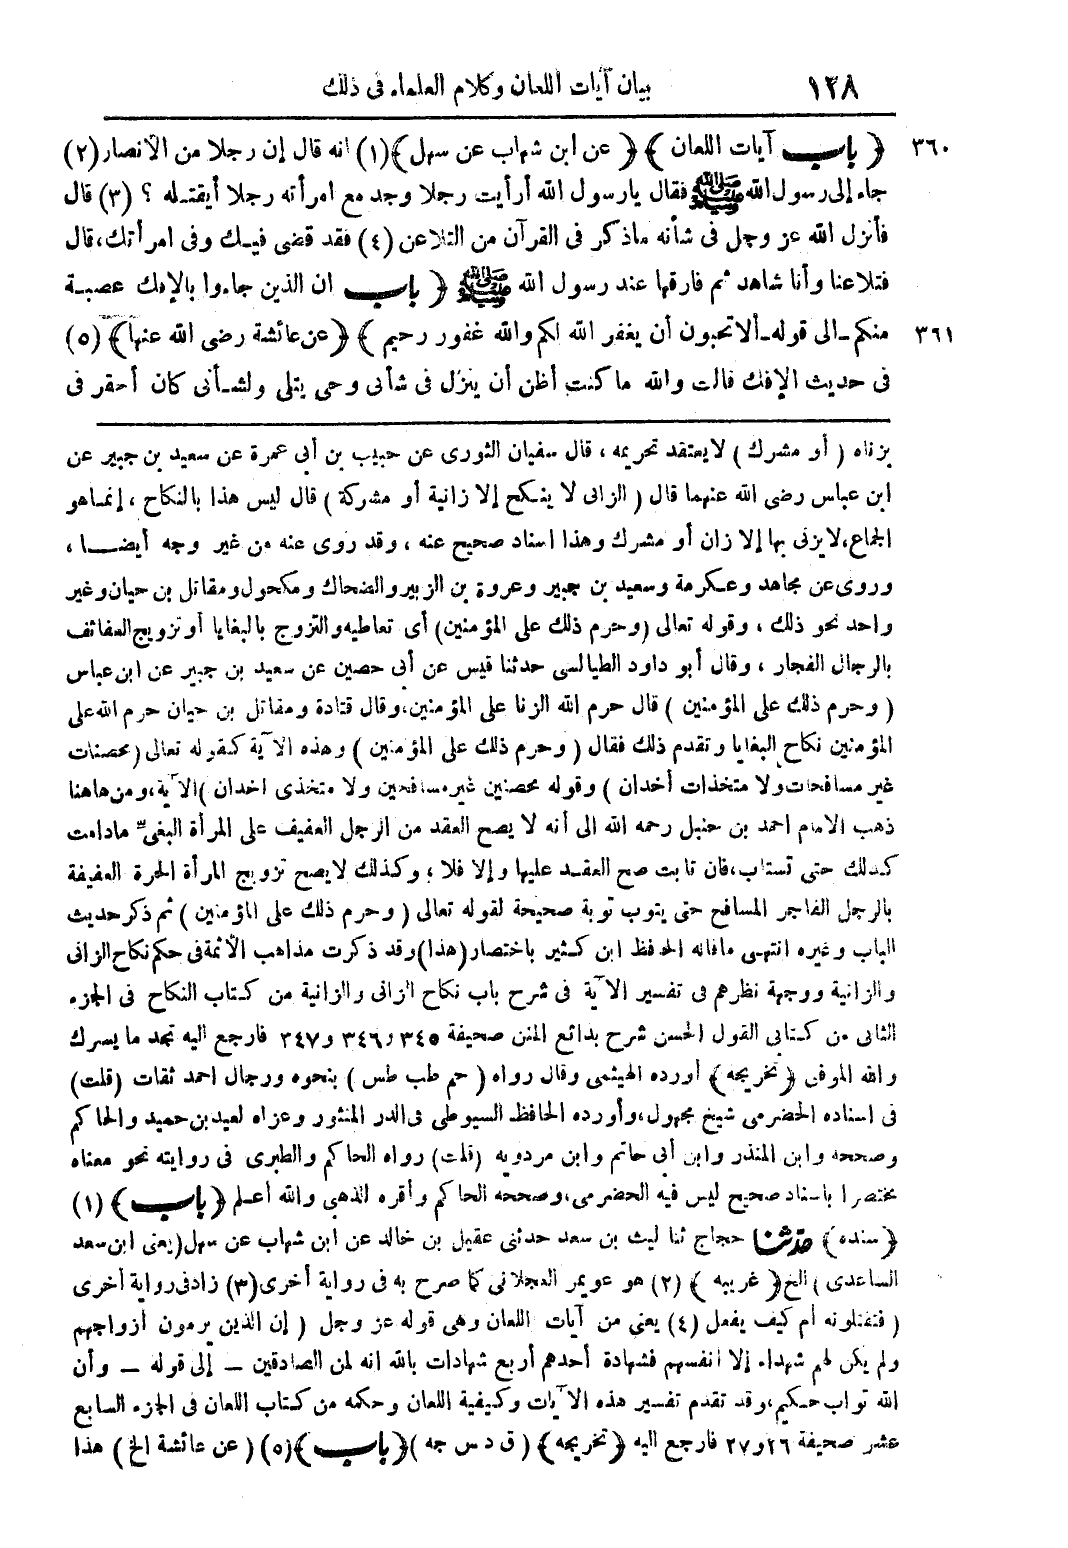 ١٣٨ بيان آيات اللعان وكلام العلماء فى ذلك
٣٦٠ ﴿ باب آيات اللعان ﴾ ﴿ عن ابن شهاب عن سهل ﴾ (١) انه قال إن رجلا من الأنصار (٢)
جاء إلى رسول الله ﷺ فقال يارسول الله أرأيت رجلا وجد مع امرأته رجلا أيقتله ؟ (٣) قال
فأنزل الله عز وجل فى شأنه ماذكر فى القرآن من التلاعن (٤) فقد قضى فيك وفى امرأتك، قال
فتلاعنا وأنا شاهد ثم فارقها عند رسول الله ﷺ ﴿ باب ان الذين جاءوا بالإفك عصبة
٣٦١ منكم ـ الى قوله ـ ألاتحبون أن يغفر الله لكم والله غفور رحيم ﴾ ﴿ عن عائشة رضى الله عنها ﴾ (٥)
فى حديث الإفك قالت والله ما كنت أظن أن ينزل فى شأنى وحى يتلى ولشأنى كان أحقر فى
بزناه ( أو مشرك ) لايعتقد تحريمه ، قال سفيان الثورى عن حبيب بن أبى عمرة عن سعيد بن جبير عن
ابن عباس رضى الله عنهما قال ( الزانى لا ينكح إلا زانية أو مشركة ) قال ليس هذا بالنكاح ، إنماهو
الجماع، لايزنى بها إلا زان أو مشرك وهذا اسناد صحيح عنه ، وقد روى عنه من غير وجه أيضا ،
وروى عن مجاهد وعكرمة وسعيد بن جبير وعروة بن الزبير والضحاك ومكحول ومقاتل بن حيان وغير
واحد نحو ذلك ، وقوله تعالى (وحرم ذلك على المؤمنين) أى تعاطيه والتزوج بالبغايا أوتزويج العفائف
بالرجال الفجار ، وقال أبو داود الطيالسى حدثنا قيس عن أبى حصين عن سعيد بن جبير عن ابن عباس
( وحرم ذلك على المؤمنين ) قال حرم الله الزنا على المؤمنين، وقال قتادة ومقاتل بن حيان حرم الله على
المؤمنين نكاح البغايا وتقدم ذلك فقال ( وحرم ذلك على المؤمنين ) وهذه الآية كقوله تعالى (محصنات
غير مسافحات ولا متخذات أخدان ) وقوله محصنين غير مسافحين ولا متخذى اخدان )الآية، ومن هاهنا
ذهب الامام احمد بن حنبل رحمه الله الى أنه لا يصح العقد من الرجل العفيف على المرأة البغىّ مادامت
كذلك حتى تستاب، فان تابت صح العقد عليها وإلا فلا ؛ وكذلك لايصح تزويج المرأة الحرة العفيفة
بالرجل الفاجر المسافح حتى يتوب توبة صحيحة لقوله تعالى ( وحرم ذلك على المؤمنين ) ثم ذكر حديث
الباب وغيره انتهى ماقاله الحافظ ابن كثير باختصار (هذا) وقد ذكرت مذاهب الأئمة فى حكم نكاح الزانى
والزانية ووجهة نظرهم فى تفسير الآية فى شرح باب نكاح الزانى والزانية من كتاب النكاح فى الجزء
الثانى من كتابى القول الحسن شرح بدائع المنن صحيفة ٣٤٥ و ٣٤٦ و ٣٤٧ فارجع اليه تجد ما يسرك
والله الموفق ﴿ تخريجه ﴾ أورده الهيثمى وقال رواه ( حم طب طس ) بنحوه ورجال احمد ثقات (قلت)
فى اسناده الحضرمى شيخ مجهول، وأورده الحافظ السيوطى فى الدر المنثور وعزاه لعبد بن حميد والحاكم
وصححه وابن المنذر وابن أبى حاتم وابن مردويه (قلت) رواه الحاكم والطبرى فى روايته نحو معناه
مختصرا باسناد صحيح ليس فيه الحضرمى، وصححه الحاكم وأقره الذهبى والله أعلم ﴿ باب ﴾ (١)
﴿ سنده ﴾ حدثنا حجاج ثنا ليث بن سعد حدثنى عقيل بن خالد عن ابن شهاب عن سهل (يعنى ابن سعد
الساعدى ) الخ ﴿ غريبه ﴾ (٢) هو عويمر العجلانى كما صرح به فى رواية أخرى (٣) زاد فى رواية أخرى
( فتقتلونه أم كيف يفعل (٤) يعنى من آيات اللعان وهى قوله عز وجل ( إن الذين يرمون أزواجهم
ولم يكن لهم شهداء إلا انفسهم فشهادة أحدهم أربع شهادات بالله انه لمن الصادقين ــ إلى قوله ــ وأن
الله تواب حكيم، وقد تقدم تفسير هذه الآيات وكيفية اللعان وحكمه من كتاب اللعان فى الجزء السابع
عشر صحيفة ٢٦ و ٢٧ فارجع اليه ﴿ تخريجه ﴾ ( ق د س جه ) ﴿ باب ﴾ (٥) ( عن عائشة الخ ) هذا